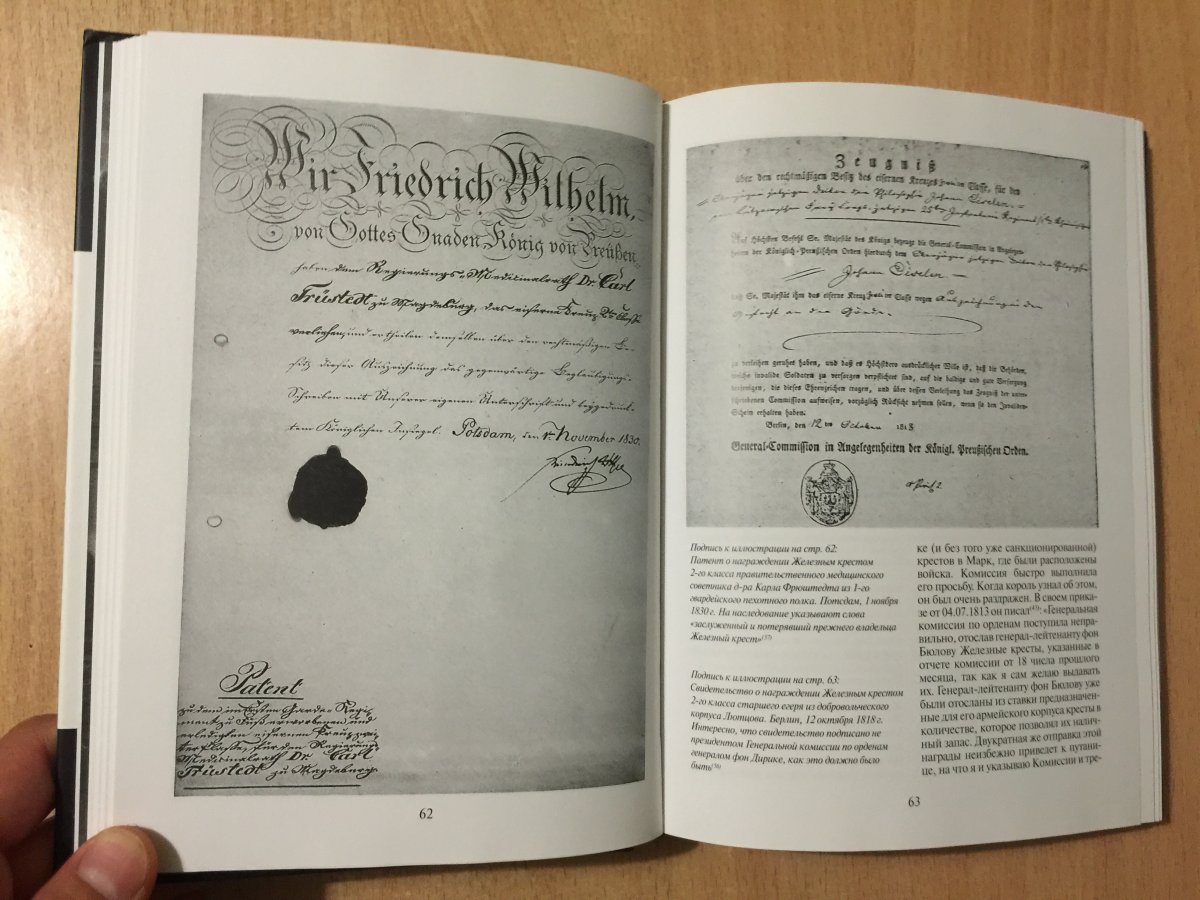 Wir Friedrich Wilhelm,
von Gottes Gnaden König von Preußen
haben dem Regierungs-Medicinalrath Dr. Carl
Früstedt zu Magdeburg, das eiserne Kreuz 2ter Classe
verliehen, und ertheilen demselben über den rechtmäßigen Be-
sitz dieser Auszeichnung das gegenwärtige Beglaubigungs-
Schreiben mit Unserer eigenen Unterschrift und beygedruck-
tem Königlichen Insiegel. Potsdam, den 1 November 1830.
Patent
zu dem im Ersten Garde-Regi-
ment zu Fuß erworbenen und
erledigten eisernen Kreuz zwei-
ter Classe, für den Regierungs-
Medicinalrath Dr. Carl
Früstedt zu Magdeburg.
62
Zeugniß
über den rechtmäßigen Besitz des eisernen Kreuzes zweiter Classe, für den
jetzigen Doktor der Philosophie Johann
jetzigen 25ten Infanterie Regiments
Auf Höchsten Befehl Sr. Majestät des Königs bezeugt die General-Commission in Angelegen-
heiten der Königlich-Preußischen Orden hierdurch dem Oberjäger jetzigen Doktor der Philosophie
Johann
daß Se. Majestät ihm das eiserne Kreuz zweiter Classe wegen Auszeichnung in dem
Gefecht an der Göhrde.
zu verleihen geruhet haben, und daß es Höchstdero ausdrücklicher Wille ist, daß die Behörden,
welche invalide Soldaten zu versorgen verpflichtet sind, auf die baldige und gute Versorgung
derjenigen, die dieses Ehrenzeichen tragen, und über dessen Verleihung das Zeugniß der unter-
schriebenen Commission aufweisen, vorzüglich Rücksicht nehmen sollen, wenn sie den Invaliden-
Schein erhalten haben.
Berlin, den 12ten October 1818
General-Commission in Angelegenheiten der Königl. Preußischen Orden.
Подпись к иллюстрации на стр. 62:
Патент о награждении Железным крестом
2-го класса правительственного медицинского
советника д-ра Карла Фрюштедта из 1-го
гвардейского пехотного полка. Потсдам, 1 ноября
1830 г. На наследование указывают слова
«заслуженный и потерявший прежнего владельца
Железный крест»(57)
Подпись к иллюстрации на стр. 63:
Свидетельство о награждении Железным крестом
2-го класса старшего егеря из добровольческого
корпуса Лютцова. Берлин, 12 октября 1818 г.
Интересно, что свидетельство подписано не
президентом Генеральной комиссии по орденам
генералом фон Дирике, как это должно было
быть(56)
ке (и без того уже санкционированной)
крестов в Марк, где были расположены
войска. Комиссия быстро выполнила
его просьбу. Когда король узнал об этом,
он был очень раздражен. В своем прика-
зе от 04.07.1813 он писал(43): «Генеральная
комиссия по орденам поступила непра-
вильно, отослав генерал-лейтенанту фон
Бюлову Железные кресты, указанные в
отчете комиссии от 18 числа прошлого
месяца, так как я сам желаю выдавать
их. Генерал-лейтенанту фон Бюлову уже
были отосланы из ставки предназначен-
ные для его армейского корпуса кресты в
количестве, которое позволял их налич-
ный запас. Двукратная же отправка этой
награды неизбежно приведет к путани-
це, на что я и указываю Комиссии и тре-
63